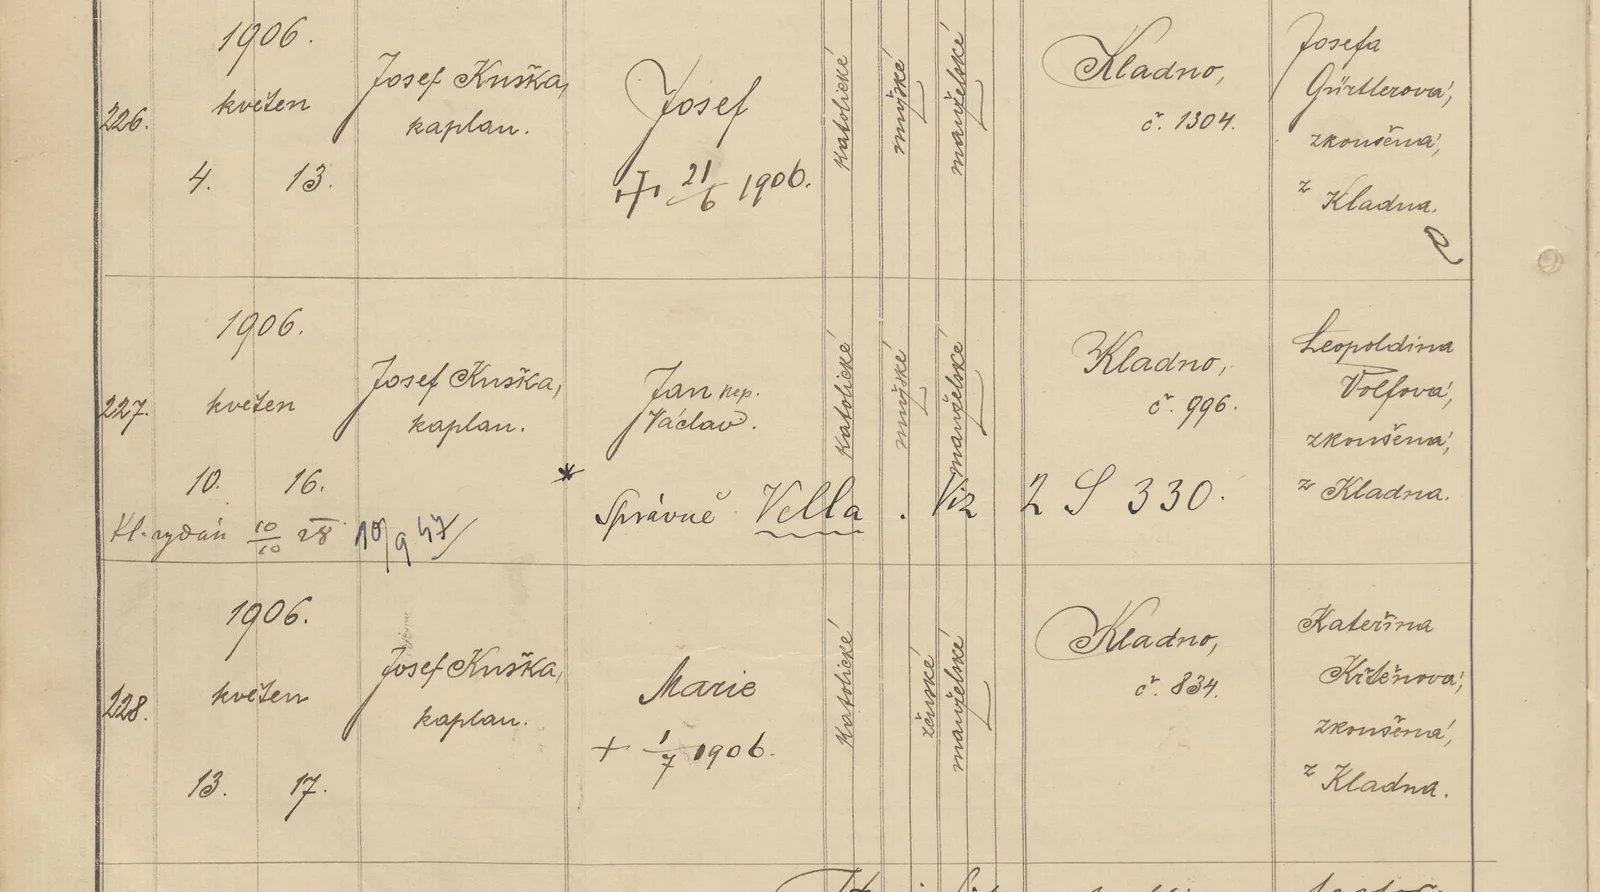 226.
1906.
květen
4. 13.
Josef Kuška,
kaplan.
Josef
+ 21/6 1906.
katolické
mužské
manželské
Kladno,
č. 1304.
Josefa
Gürtlerová,
zkoušená,
z
Kladna.
227.
1906.
květen
10. 16.
Kl. vydán 10/10 28 10/9 47
Josef Kuška,
kaplan.
Jan nep.
Václav.
* Správně Vella. Viz 2 S 330.
katolické
mužské
manželské
Kladno,
č. 996.
Leopoldina
Volfová,
zkoušená,
z Kladna.
228.
1906.
květen
13. 17.
Josef Kuška,
kaplan.
Marie
+ 1/7 1906.
katolické
ženské
manželské
Kladno,
č. 834.
Kateřina
Křtěnová,
zkoušená,
z
Kladna.